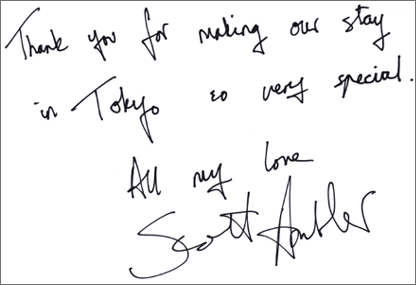 Thank you for making our stay
in Tokyo so very special.
All my love
Scott Ambler